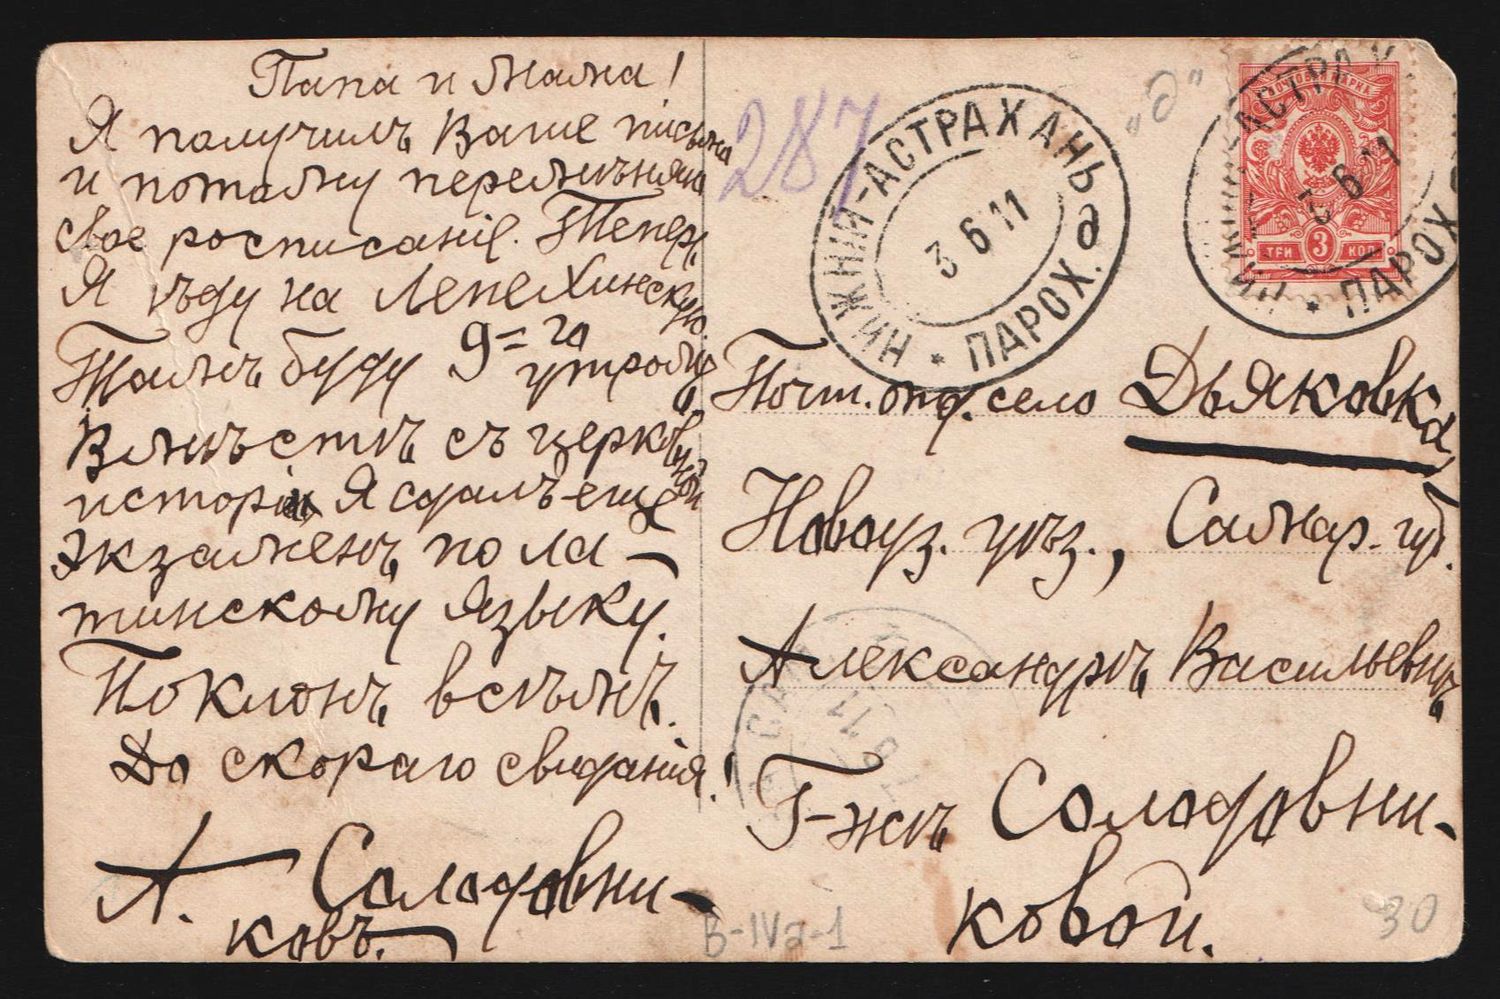 Папа и Мама!
Я получилъ Ваше письмо
и потому перемѣняю
свое росписаніе. Теперь
Я ѣду на Лепехинскую
Тамъ буду 9=го
утромъ,
Вмѣстѣ съ церковной
исторіи Я сдалъ еще
экзаменъ по ла-
тинскому языку.
Поклонъ всѣмъ.
До скораго свиданія!
А. Солодовни-
ковъ.
287
"д"
НИЖНІЙ-АСТРАХАНЬ д
3 6 11
* ПАРОХ.
ПОЧТОВАЯ МАРКА
ТРИ 3 КОП
НИЖНІЙ-АСТРАХ
3 6 11
* ПАРОХ
Почт. отд. село Дьяковка,
Новоуз. уѣз., Самар. губ.
Александрѣ Васильевнѣ
Г-жѣ Солодовни-
ковой.
В-IVa-1
30